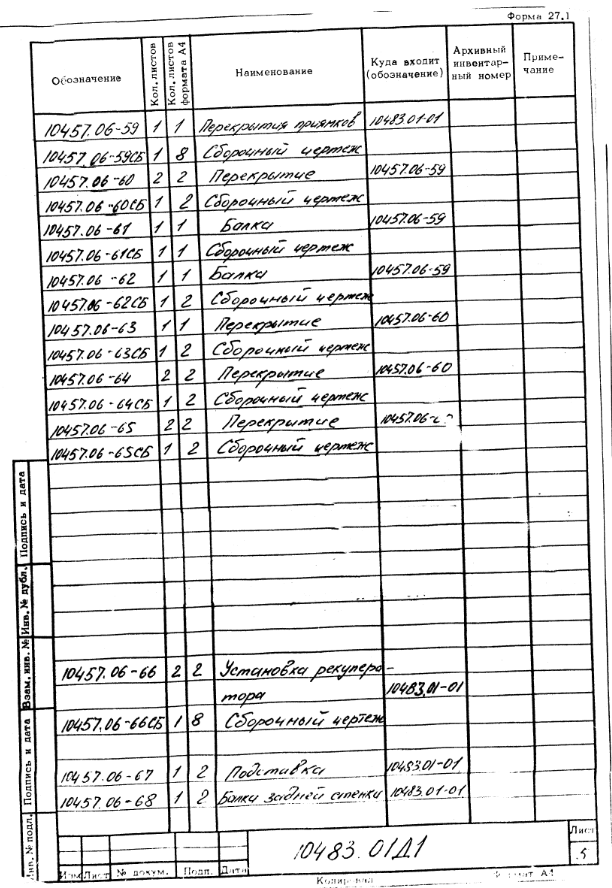 Форма 27.1
Обозначение Кол. листов Кол. листов формата А4 Наименование Куда входит (обозначение) Архивный инвентар-ный номер Приме-чание
10457.06-59 1 1 Перекрытия приямков 10483.01-01
10457.06-59СБ 1 8 Сборочный чертеж
10457.06-60 2 2 Перекрытие 10457.06-59
10457.06-60СБ 1 2 Сборочный чертеж
10457.06-61 1 1 Балка 10457.06-59
10457.06-61СБ 1 1 Сборочный чертеж
10457.06-62 1 1 Балка 10457.06-59
10457.06-62СБ 1 2 Сборочный чертеж
10457.06-63 1 1 Перекрытие 10457.06-60
10457.06-63СБ 1 2 Сборочный чертеж
10457.06-64 2 2 Перекрытие 10457.06-60
10457.06-64СБ 1 2 Сборочный чертеж
10457.06-65 2 2 Перекрытие
10457.06-65СБ 1 2 Сборочный чертеж
10457.06-66 2 2 Установка рекупера-
тора 10483.01-01
10457.06-66СБ 1 8 Сборочный чертеж
10457.06-67 1 2 Подставка 10483.01-01
10457.06-68 1 2 Балка задней стенки 10483.01-01
Подпись и дата
Инв. № дубл.
Взам. инв. №
Подпись и дата
Инв. № подл.
10483.01Д1
Лист
5
Изм Лист № докум. Подп. Дата
Копировал Формат А4